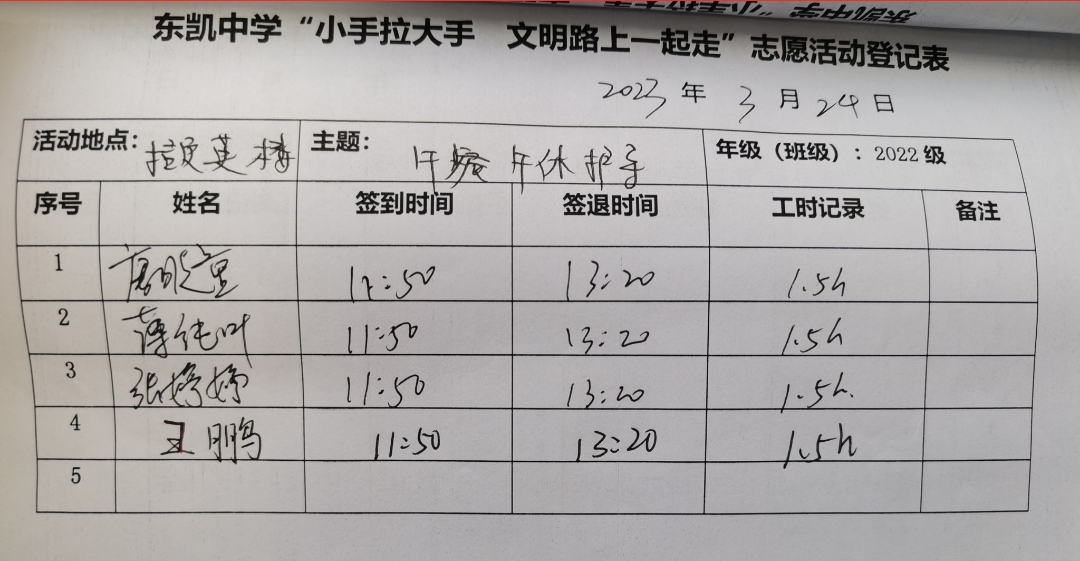 东凯中学“小手拉大手 文明路上一起走”志愿活动登记表
2023年3月24日
活动地点： 英楼 主题： 午餐午休护导 年级（班级）：2022级
序号 姓名 签到时间 签退时间 工时记录 备注
1 11:50 13:20 1.5h
2 11:50 13:20 1.5h
3 张婷婷 11:50 13:20 1.5h.
4 王鹏 11:50 13:20 1.5h
5